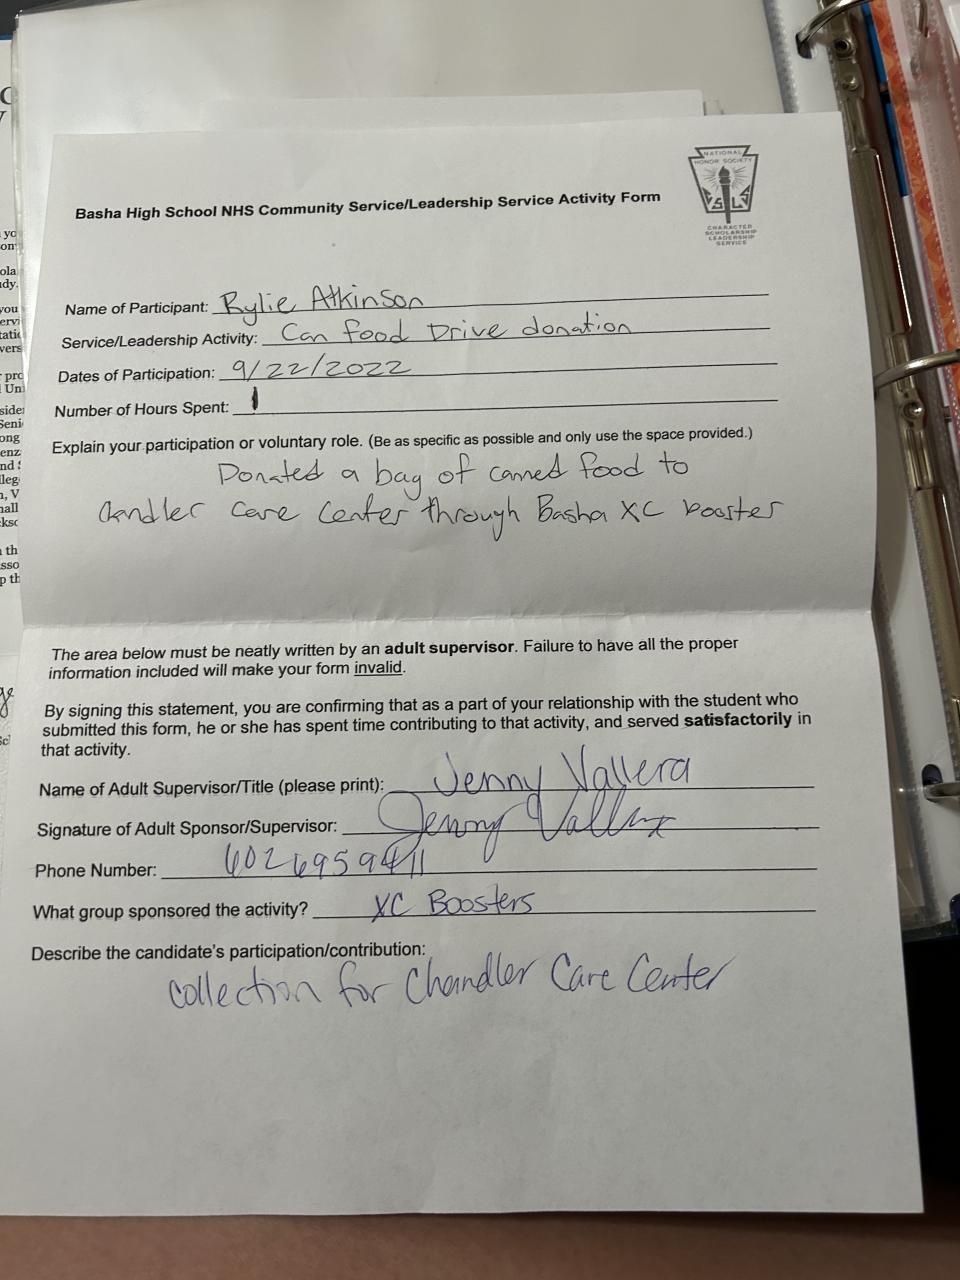 NATIONAL
HONOR SOCIETY
S L S
CHARACTER
SCHOLARSHIP
LEADERSHIP
SERVICE
Basha High School NHS Community Service/Leadership Service Activity Form
Name of Participant: Rylie Atkinson
Service/Leadership Activity: Can food Drive donation
Dates of Participation: 9/22/2022
Number of Hours Spent: 1
Explain your participation or voluntary role. (Be as specific as possible and only use the space provided.)
Donated a bag of canned food to
Chandler Care Center through Basha XC booster
The area below must be neatly written by an adult supervisor. Failure to have all the proper
information included will make your form invalid.
By signing this statement, you are confirming that as a part of your relationship with the student who
submitted this form, he or she has spent time contributing to that activity, and served satisfactorily in
that activity.
Name of Adult Supervisor/Title (please print): Jenny Vallera
Signature of Adult Sponsor/Supervisor: Jenny
Phone Number: 6026959411
What group sponsored the activity? XC Boosters
Describe the candidate's participation/contribution:
collection for Chandler Care Center